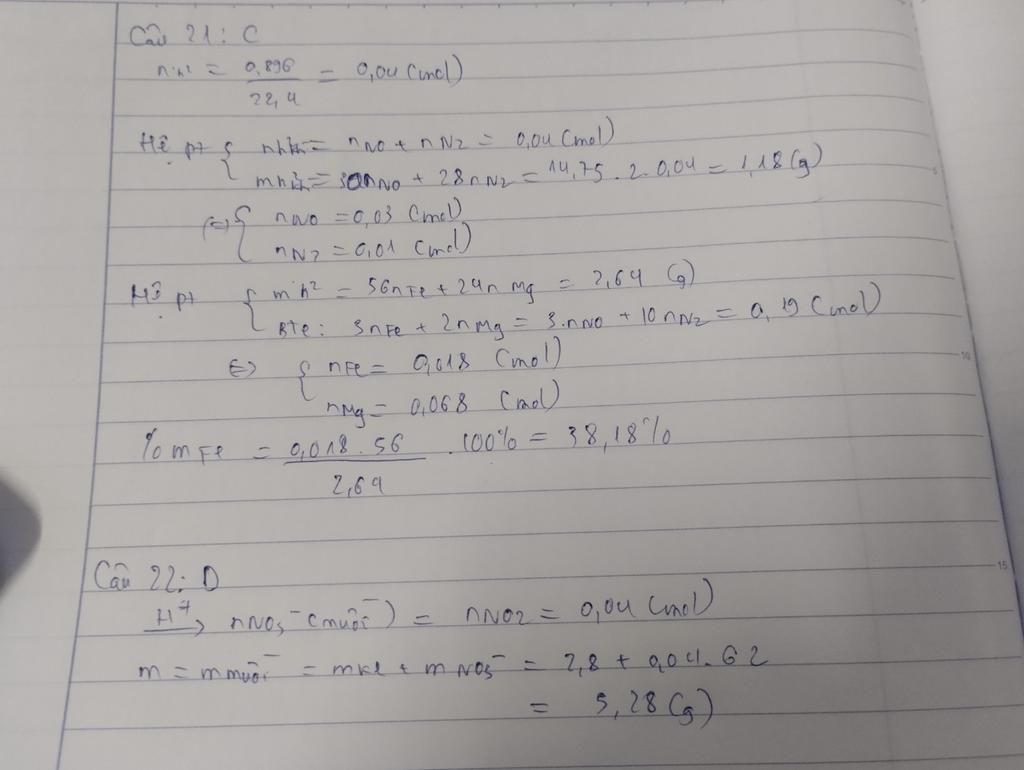 Câu 21: C
n h² = 0,896 / 22,4 = 0,04 (mol)
Hệ pt { nkhí = nNO + nN2 = 0,04 (mol)
mkhí = 30nNO + 28nN2 = 14,75 . 2 . 0,04 = 1,18 (g)
(=) { nNO = 0,03 (mol)
nN2 = 0,01 (mol)
Hệ pt { m h² = 56nFe + 24nMg = 2,64 (g)
BTe: 3nFe + 2nMg = 3.nNO + 10nN2 = 0,19 (mol)
(=) { nFe = 0,018 (mol)
nMg = 0,068 (mol)
%mFe = 0,018.56 / 2,64 . 100% = 38,18%
Câu 22: D
H+ → nNO3⁻(muối) = nNO2 = 0,04 (mol)
m = mmuối = mkl + mNO3⁻ = 2,8 + 0,04.62
= 5,28 (g)